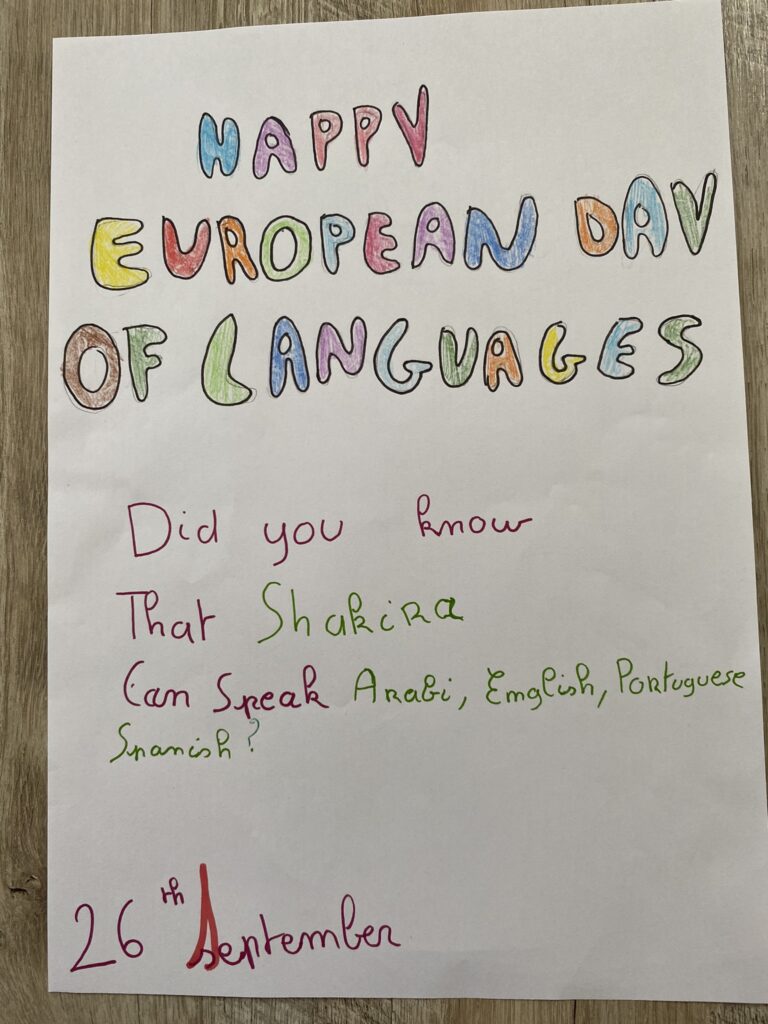 HAPPY
EUROPEAN DAY
OF LANGUAGES
Did you know
That Shakira
Can Speak Arabi, English, Portuguese
Spanish?
26th September